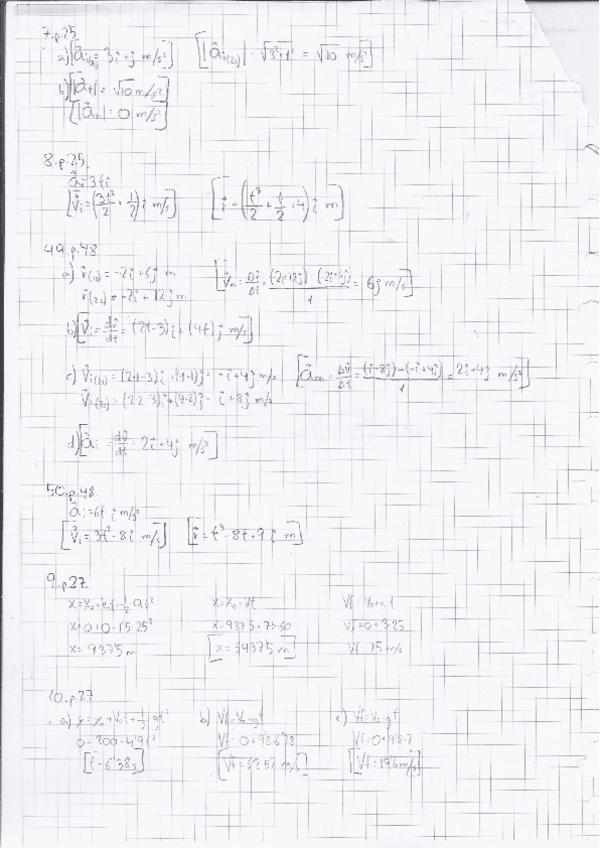 7.p.25
a) [ā i(2s) = 3i + j m/s²] [|ā i(2s)| = √3²+1² = √10 m/s²]
b) [|āt| = √10 m/s²]
[|ān| = 0 m/s²]
8.p.25.
ā i 3ti
[v̄i = (3t²/2 + 1/2) i m/s] [r̄ = (t³/2 + t/2 + 4) i m]
49.p.48
a) r̄(1s) = -2i + 6j m [v̄m = Δr̄/Δt = (-2i+12j) - (-2i+6j)/1 = 6j m/s]
r̄(2s) = -2i + 12j m
b) [v̄i = dr̄/dt = (2t-3)i + (4t)j m/s]
c) v̄i(1s) = (2·1-3)i + (4·1)j = -i + 4j m/s [ām = Δv̄/Δt = (i+8j) - (-i+4j)/1 = 2i+4j m/s²]
v̄i(2s) = (2·2-3)i + (4·2)j = i + 8j m/s
d) [āi = dv̄/dt = 2i + 4j m/s²]
50.p.48.
āi = 6t i m/s²
[v̄i = 3t² - 8 i m/s] [r̄ = t³ - 8t + 9 i m]
9.p27
x = x₀ + v₀t + ½ at² x = x₀ + vt Vf = V₀ + a·t
x = 0 + 0 + 1'5·25² x = 937'5 + 75·60 Vf = 0 + 3·25
x = 937'5 m [x = 5437'5 m] Vf = 75 m/s
10.p.27
a) y = y₀ + V₀t + ½ gt² b) Vf = V₀ + gt c) Vf = V₀ + gt
0 = 200 - 4'9t² Vf = 0 + 9'8·6'38 Vf = 0 + 9'8·2
[t = 6'38 s] [Vf = 62'52 m/s] [Vf = 19'6 m/s]